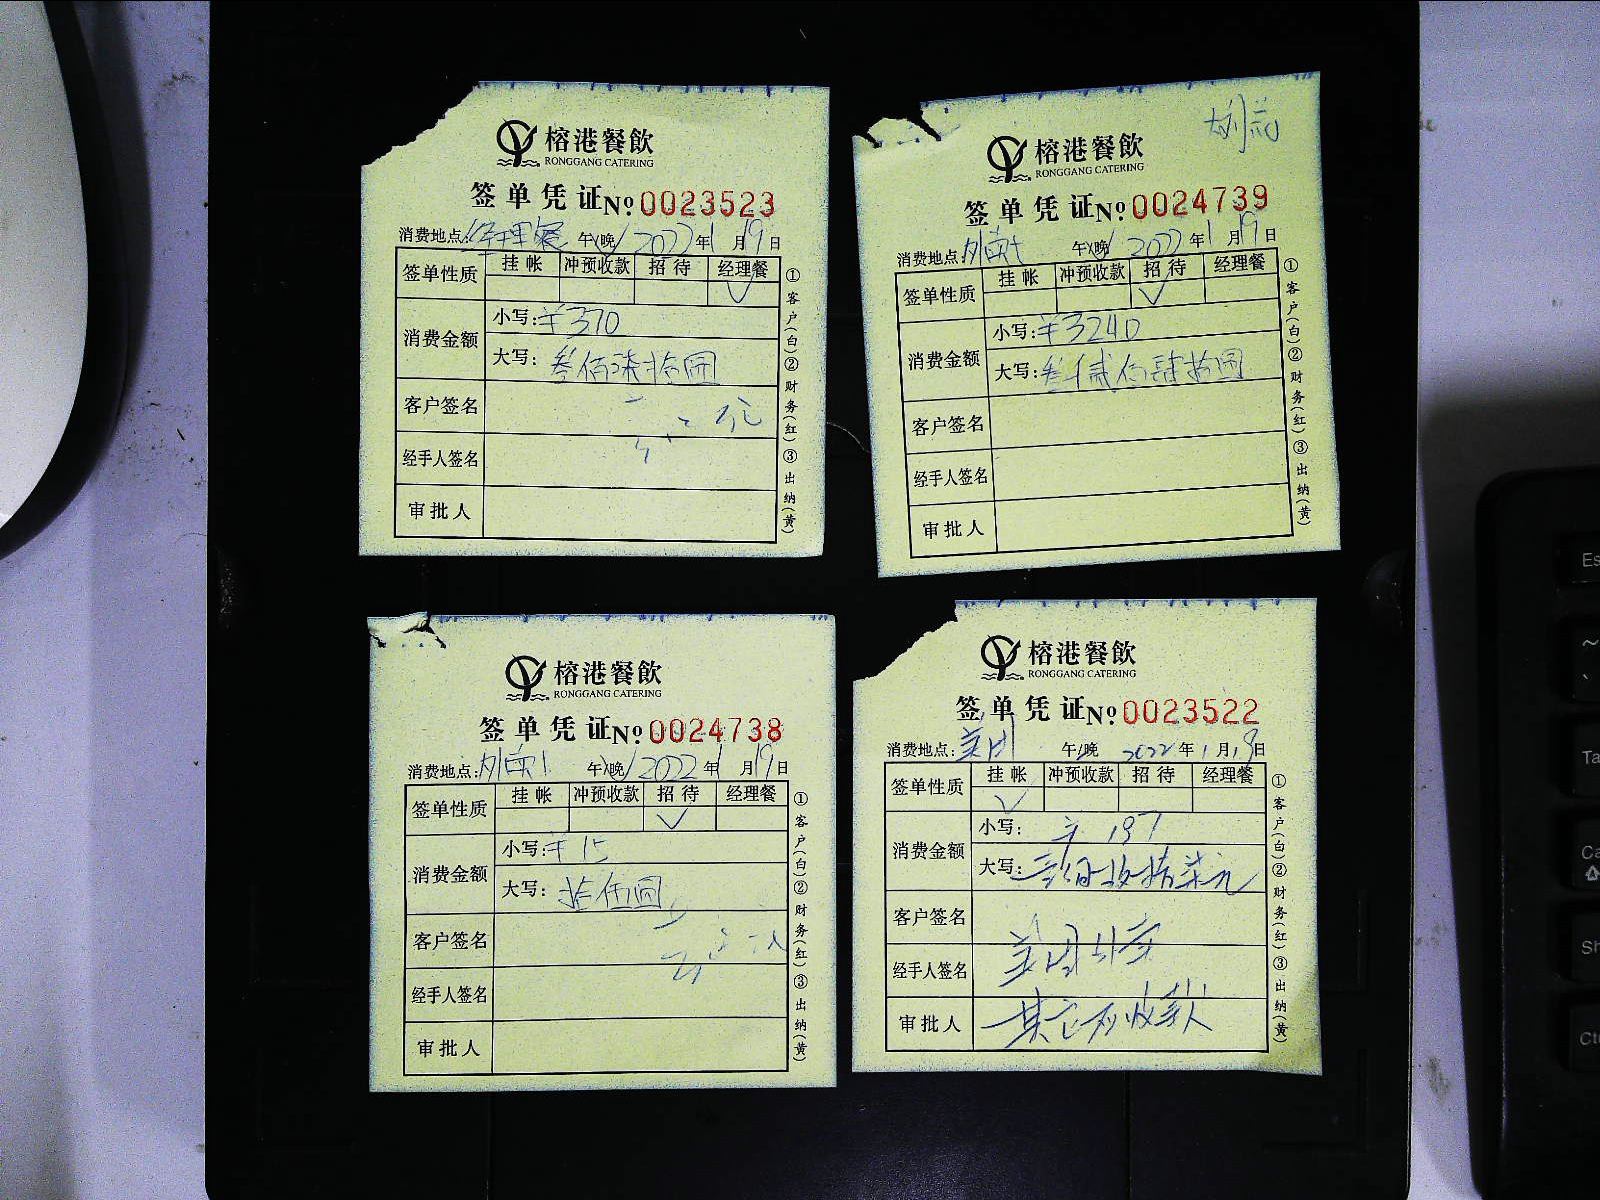 榕港餐飲
RONGGANG CATERING
签单凭证 № 0023523
消费地点: 经理餐 午/晚 2022年1月19日
签单性质 挂帐 冲预收款 招待 经理餐
√
消费金额 小写: ¥370
大写: 叁佰柒拾圆
客户签名
经手人签名
审批人
①客户(白)②财务(红)③出纳(黄)
榕港餐飲
RONGGANG CATERING
签单凭证 № 0024739
消费地点: 午/晚 2022年1月19日
签单性质 挂帐 冲预收款 招待 经理餐
√
消费金额 小写: ¥3240
大写: 叁仟贰佰肆拾圆
客户签名
经手人签名
审批人
①客户(白)②财务(红)③出纳(黄)
榕港餐飲
RONGGANG CATERING
签单凭证 № 0024738
消费地点: 午/晚 2022年1月19日
签单性质 挂帐 冲预收款 招待 经理餐
√
消费金额 小写: ¥15
大写: 拾伍圆
客户签名
经手人签名
审批人
①客户(白)②财务(红)③出纳(黄)
榕港餐飲
RONGGANG CATERING
签单凭证 № 0023522
消费地点: 美团 午/晚 2022年1月19日
签单性质 挂帐 冲预收款 招待 经理餐
√
消费金额 小写: ¥197
大写: 壹佰玖拾柒元
客户签名
美团外卖
经手人签名
审批人 其它应收款
①客户(白)②财务(红)③出纳(黄)
Es
~
Ta
Ca
Sh
Ct